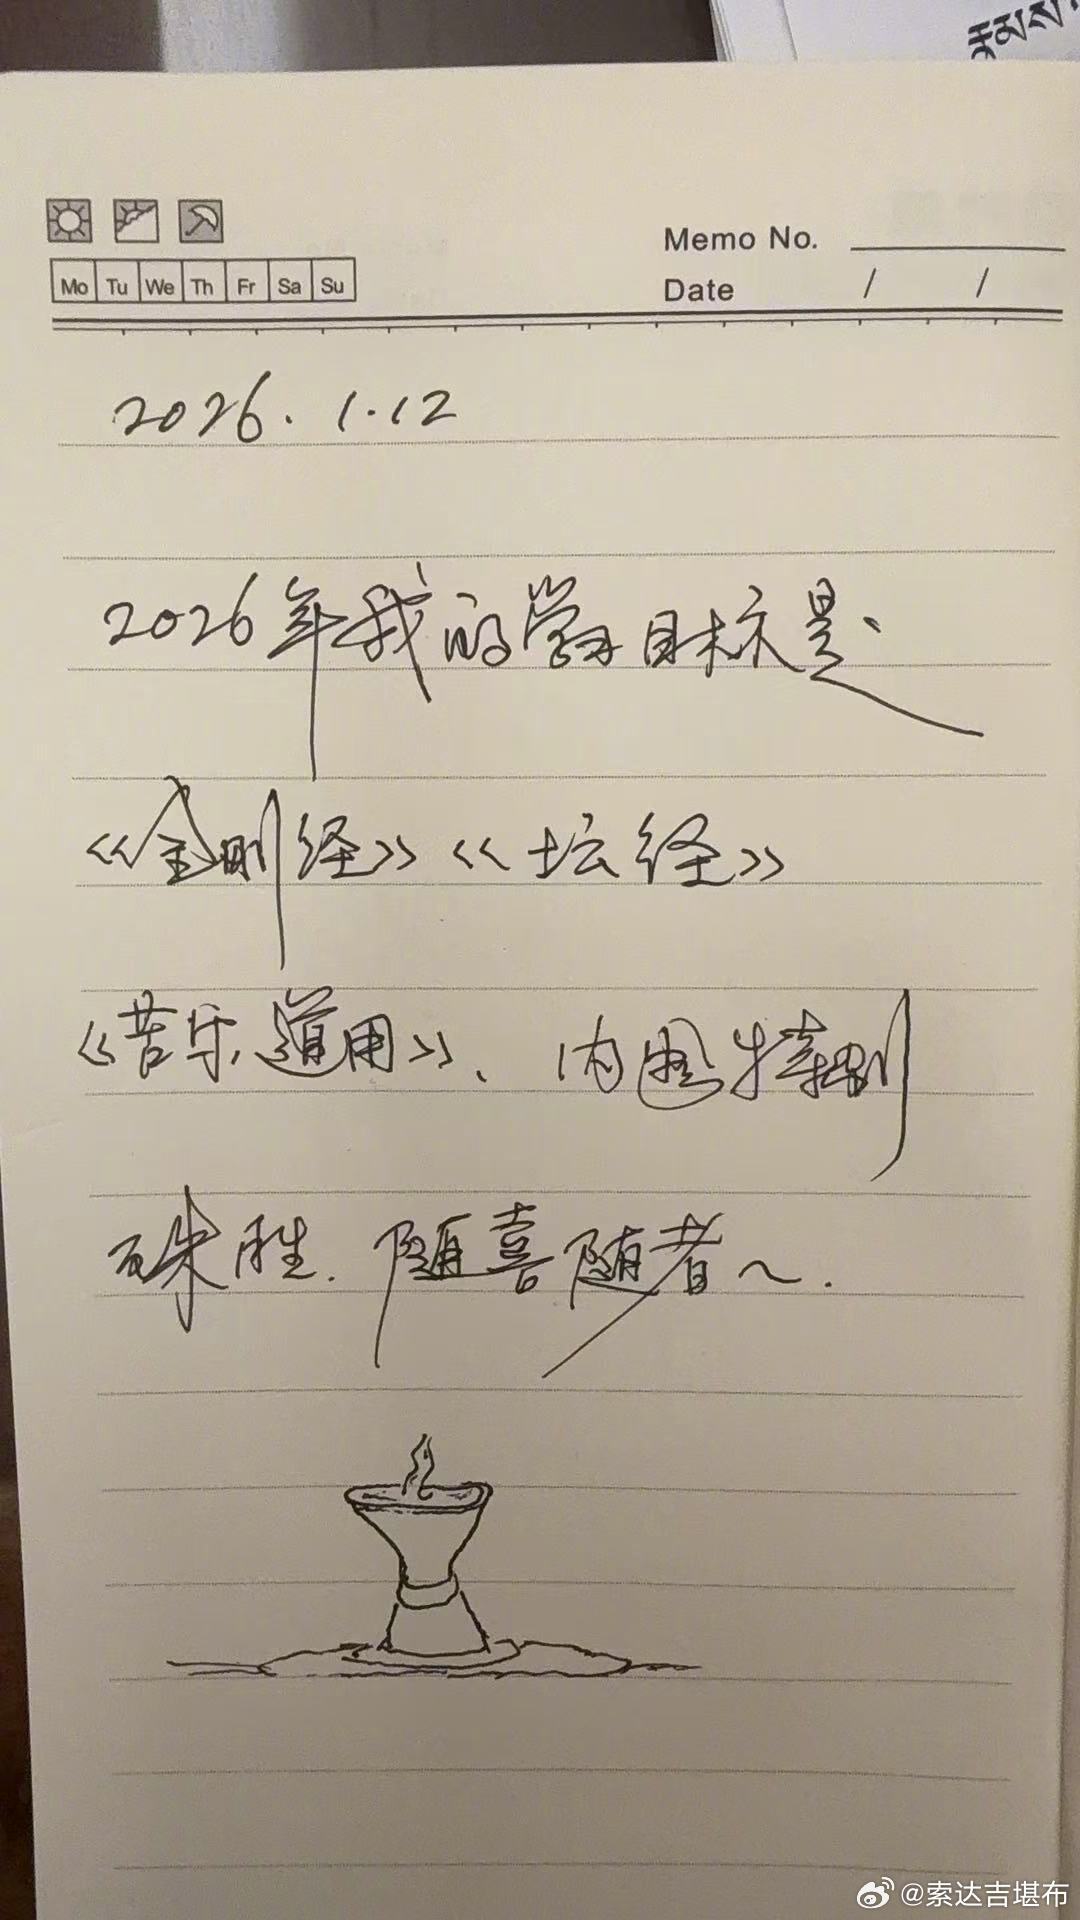 Memo No.
Mo Tu We Th Fr Sa Su
Date / /
2026.1.12
2026年我的学习目标是、
《金刚经》《坛经》
《苦乐道用》、内容特别
殊胜.随喜随者～.
@索达吉堪布